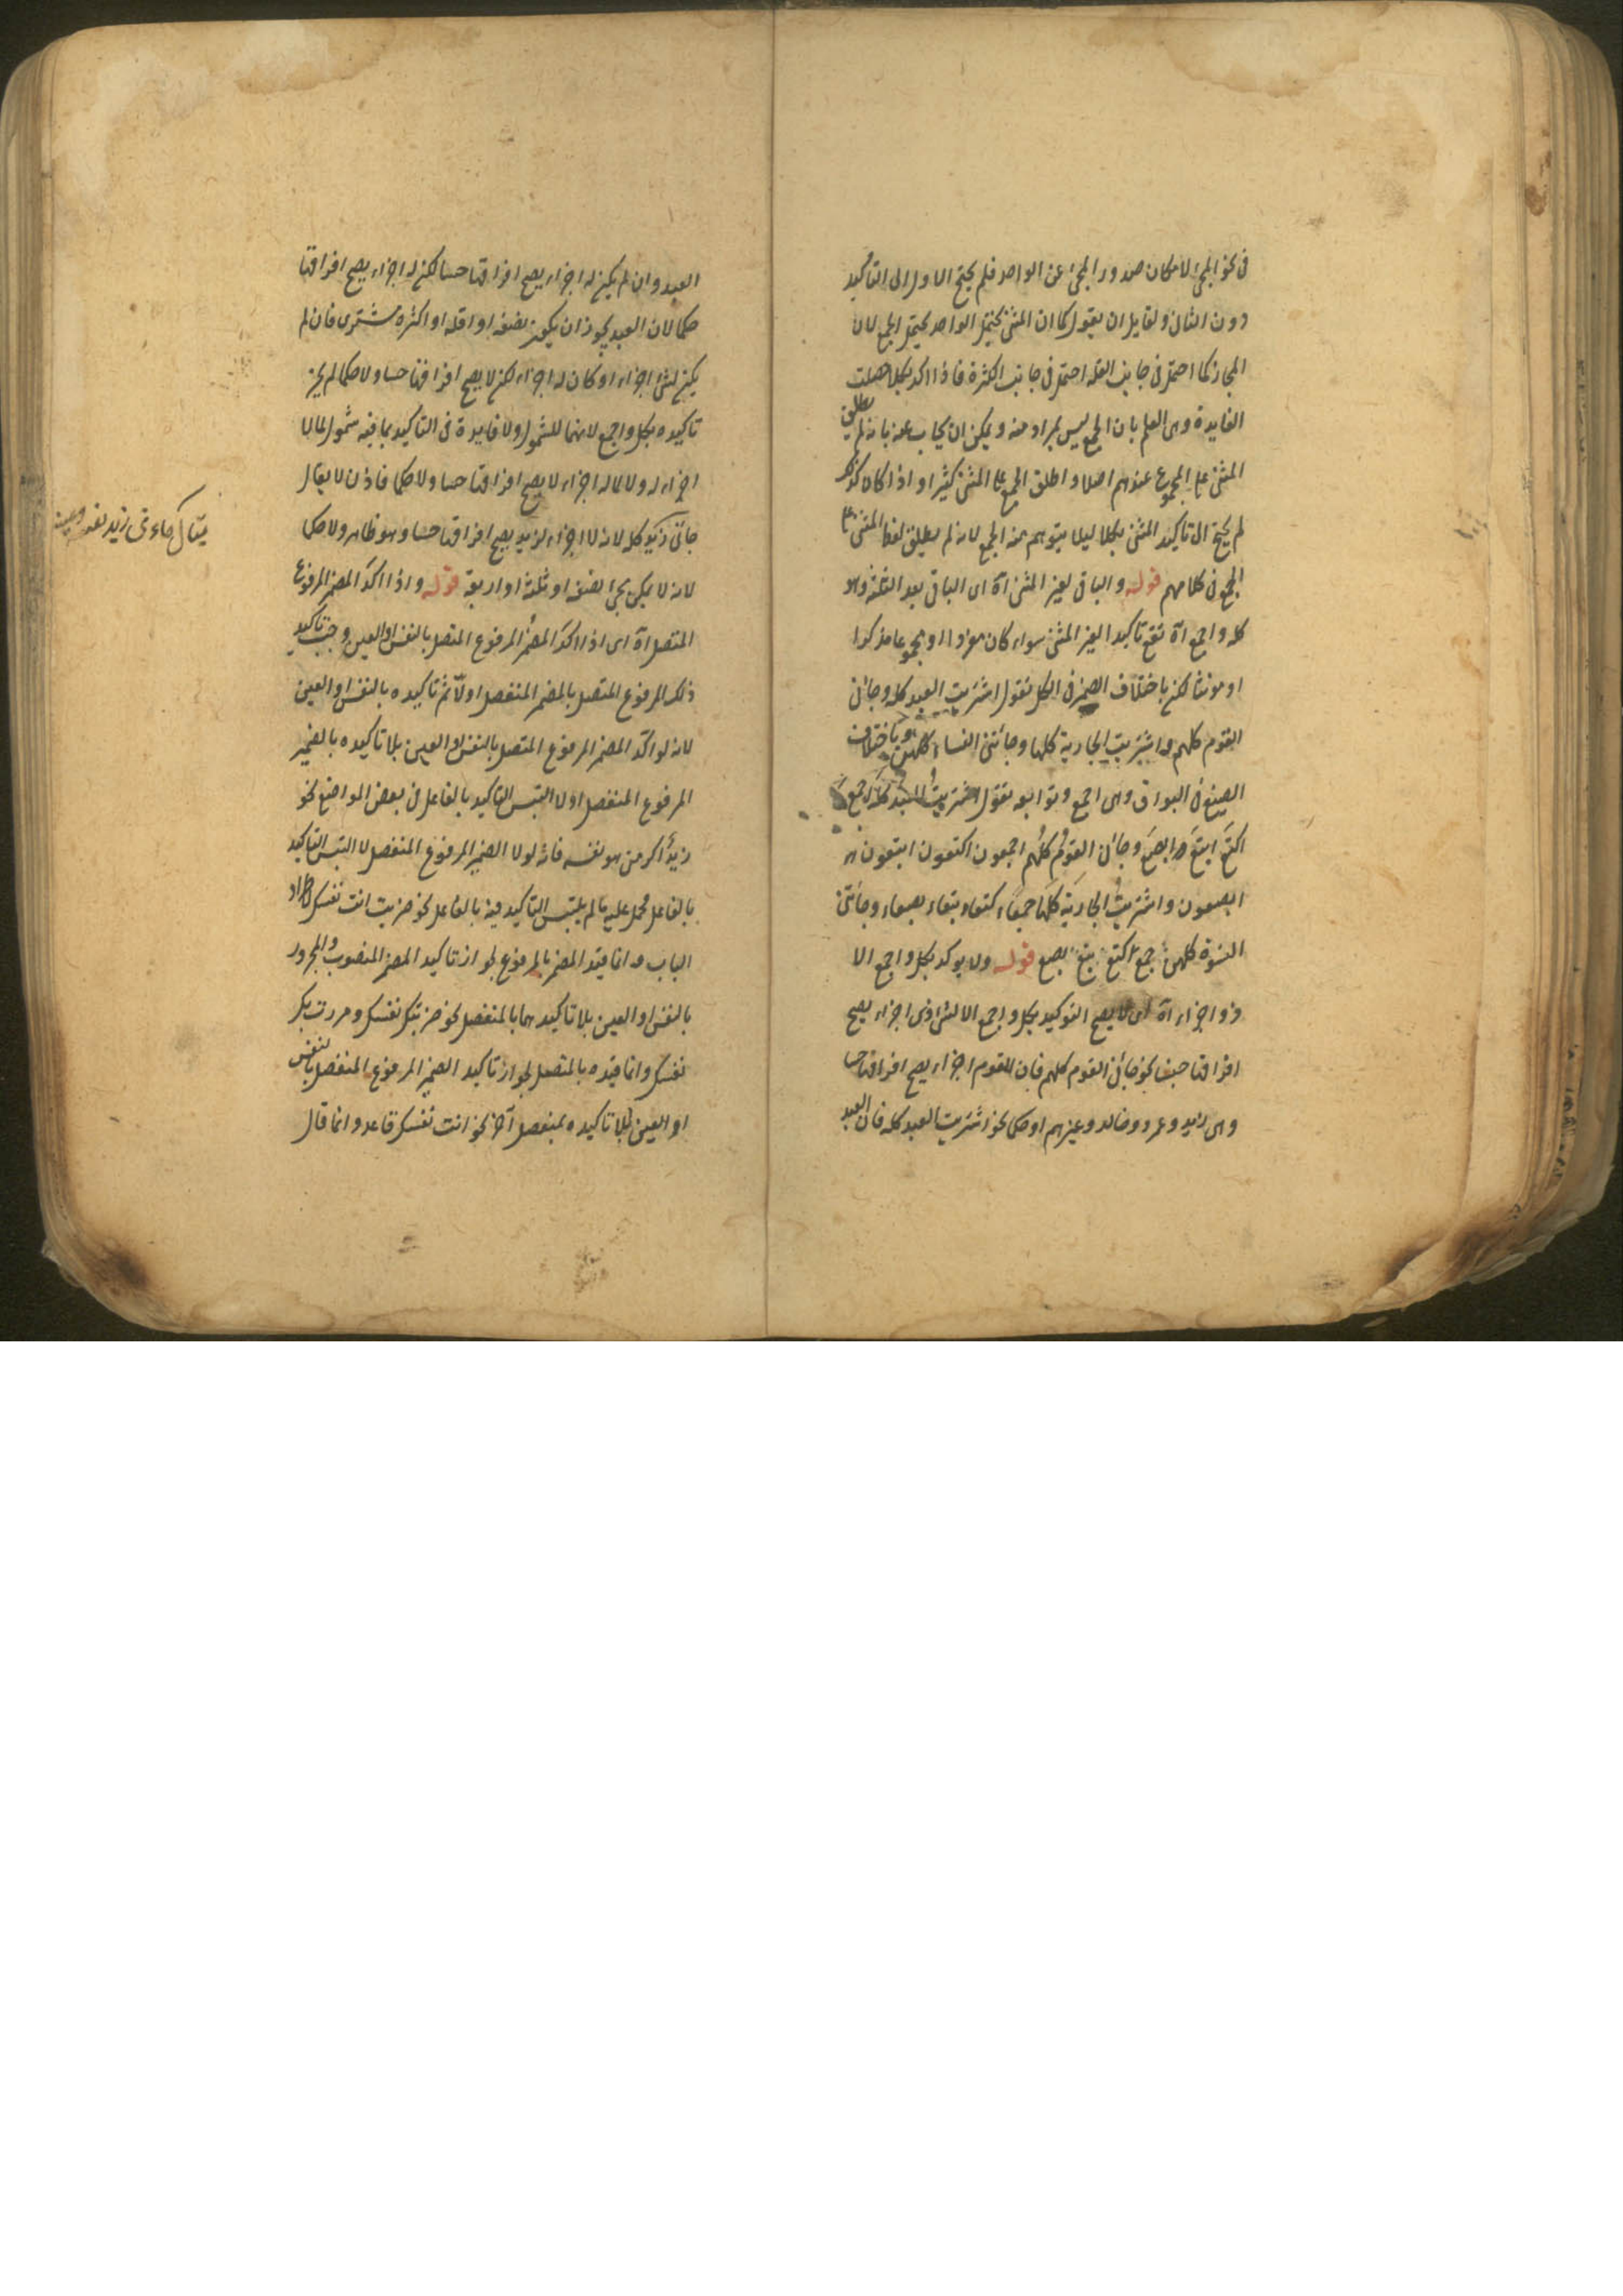 فى نحو المجئ لامكان صدور المجئ عن الواحد فلم يحتج الاول الى التاكيد
دون الثانى ولقايل ان يقول كما ان المثنى يحتمل الواحد يحتمل الجمع لان
المجاز كما احتمل فى جانب القلة احتمل فى جانب الكثرة فاذا اكد بكلا حصلت
الفايدة وهى العلم بان الجمع ليس بمراد منه ويمكن ان يجاب عنه بانه لم يطلق
المثنى على المجموع عندهم اصلا واطلق الجمع على المثنى كثيرا واذا كان كذلك
لم يحتج الى تاكيد المثنى بكلا ليلا يتوهم منه الجمع لانه لم يطلق لفظ المثنى على
الجمع فى كلامهم قوله والباقى لغير المثنى آه اى الباقى بعد الثلثة وهو
كله واجمع آه تقع تاكيدا لغير المثنى سواء كان مفردا او مجموعا مذكرا
او مونثا لكن باختلاف الضمير فى الكل تقول اشتريت العبد كله وجائنى
القوم كلهم واشتريت الجارية كلها وجائتنى النساء كلهن وباختلاف
الصيغ فى البواقى وهى اجمع وتوابعه تقول اشتريت العبد كله اجمع
اكتع ابتع ابصع وجائنى القوم كلهم اجمعون اكتعون ابتعون
ابصعون واشتريت الجارية كلها جمعاء كتعاء بتعاء بصعاء وجائتنى
النسوة كلهن جمع كتع بتع بصع قوله ولا يوكد بكل واجمع الا
ذو اجزاء آه اى لا يصح التوكيد بكل واجمع الا لشئ ذى اجزاء يصح
افتراقها حسا نحو جائنى القوم كلهم فان للقوم اجزاء يصح افتراقها حسا
وهى زيد وعمرو وخالد وغيرهم او حكما نحو اشتريت العبد كله فان العبد
العبد وان لم يكن له اجزاء يصح افتراقها حسا لكن له اجزاء يصح افتراقها
حكما لان العبد يجوز ان يكون نصفه او اقله او اكثره مشترى فان لم
يكن لشئ اجزاء او كان له اجزاء لكن لا يصح افتراقها حسا ولا حكما لم يجز
تاكيده بكل واجمع لانهما للشمول ولا فايدة فى التاكيد بما فيه شمول لما لا
اجزاء له ولا لما له اجزاء لا يصح افتراقها حسا ولا حكما فاذن لا يقال
جائنى زيد كله لانه لا اجزاء لزيد يصح افتراقها حسا وهو ظاهر ولا حكما
لانه لا يمكن مجئ نصفه او ثلثه او اربعه قوله واذا اكد المضمر المرفوع
المتصل آه اى اذا اكد المضمر المرفوع المتصل بالنفس والعين وجب تاكيد
ذلك المرفوع المتصل بالمضمر المنفصل اولا ثم تاكيده بالنفس او العين
لانه لو اكد المضمر المرفوع المتصل بالنفس او العين بلا تاكيده بالضمير
المرفوع المنفصل اولا التبس التاكيد بالفاعل فى بعض المواضع نحو
زيد اكرمنى هو نفسه فانه لولا الضمير المرفوع المنفصل لا التبس التاكيد
بالفاعل فحمل عليه ما لم يلتبس التاكيد فيه بالفاعل نحو ضربت انت نفسك لاطراد
الباب وانما قيد المضمر بالمرفوع لجواز تاكيد المضمر المنصوب والمجرور
بالنفس او العين بلا تاكيدهما بالمنفصل نحو ضربتك نفسك ومررت بك
نفسك وانما قيده بالمتصل لجواز تاكيد الضمير المرفوع المنفصل بالنفس
او العين بلا تاكيده بمنفصل آخر نحو انت نفسك قاعد وانما قال
يقال جاءنى زيد نفسه وعينه